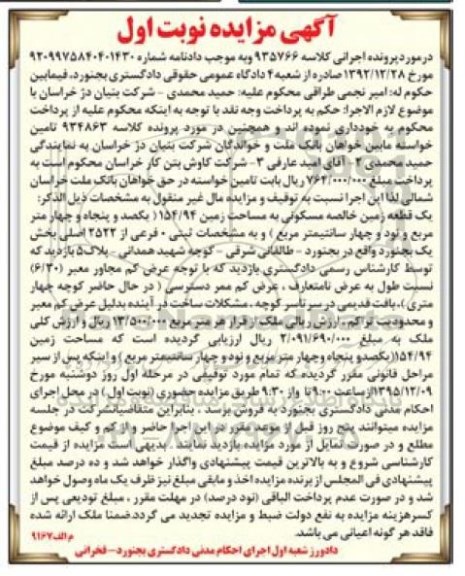 آگهی مزایده نوبت اول
درمورد پرونده اجرائی کلاسه ۹۳۵۷۶۶ وبه موجب دادنامه شماره ۹۲۰۹۹۷۵۸۴۰۴۰۱۴۳۰
مورخ ۱۳۹۲/۱۲/۲۸ صادره از شعبه ۴ دادگاه عمومی حقوقی دادگستری بجنورد، فیمابین
حکوم له: امیر نجمی طراقی محکوم علیه: حمید محمدی - شرکت بنیان دژ خراسان با
موضوع لازم الاجرا: حکم به پرداخت وجه نقد با توجه به اینکه محکوم علیه از پرداخت
محکوم به خودداری نموده اند و همچنین در مورد پرونده کلاسه ۹۳۴۸۶۳ تامین
خواسته مابین خواهان بانک ملت و خواندگان شرکت بنیان دژ خراسان به نمایندگی
حمید محمدی ۲- آقای امید عارفی ۳- شرکت کاوش بتن کار خراسان محکوم است به
پرداخت مبلغ ۷۶۲/۰۰۰/۰۰۰ ریال بابت تامین خواسته در حق خواهان بانک ملت خراسان
شمالی لذا این اجرا نسبت به توقیف و مزایده مال غیر منقول به مشخصات ذیل الذکر:
یک قطعه زمین خالصه مسکونی به مساحت زمین ۱۵۴/۹۴( یکصد و پنجاه و چهار متر
مربع و نود و چهار سانتیمتر مربع ) و به مشخصات ثبتی ۰ فرعی از ۲۵۲۲ اصلی بخش
یک بجنورد واقع در بجنورد - طالقانی شرقی - کوچه شهید همدانی - پلاک۵ بازدید که
توسط کارشناس رسمی دادگستری بازدید که با توجه عرض کم مجاور معبر (۶/۳۰)
نسبت طول به عرض نامتعارف ، عرض کم ممر دسترسی ( در حال حاضر کوچه چهار
متری )،بافت قدیمی در سرتاسر کوچه ، مشکلات ساخت در آینده بدلیل عرض کم معبر
و محدودیت تراکم ، ارزش ریالی ملک از قرار هر متر مربع ۱۳/۵۰۰/۰۰۰ ریال و ارزش کلی
ملک به مبلغ ۲/۰۹۱/۶۹۰/۰۰۰ ریال ارزیابی گردیده است که مساحت زمین
۱۵۴/۹۴(یکصدو پنجاه وچهار متر مربع و نود و چهار سانتیمتر مربع ) و اینکه پس از سیر
مراحل قانونی مقرر گردیده که تمام مورد توقیفی در مرحله اول روز دوشنبه مورخ
۱۳۹۵/۱۲/۰۹ازساعت ۹:۰۰تا واز ۹:۳۰ طریق مزایده حضوری (نوبت اول) در محل اجرای
احکام مدنی دادگستری بجنورد به فروش برسد ، بنابراین متقاضیانشرکت در جلسه
مزایده میتوانند پنج روز قبل از موعد مقرر در این اجرا حاضر و از کم و کیف موضوع
مطلع و در صورت تمایل از مورد مزایده بازدید نمایند . بدیهی است مزایده از قیمت
کارشناسی شروع و به بالاترین قیمت پیشنهادی واگذار خواهد شد و ده درصد مبلغ
پیشنهادی فی المجلس از برنده مزایده اخذ و مابقی مبلغ نیز ظرف یک ماه وصول خواهد
شد و در صورت عدم پرداخت الباقی (نود درصد) در مهلت مقرر ، مبلغ تودیعی پس از
کسرهزینه مزایده به نفع دولت ضبط و مزایده تجدید می گردد.ضمنا ملک ارائه شده
فاقد هر گونه اعیانی می باشد.
م الف۹۱۶۷
دادورز شعبه اول اجرای احکام مدنی دادگستری بجنورد– فخرانی